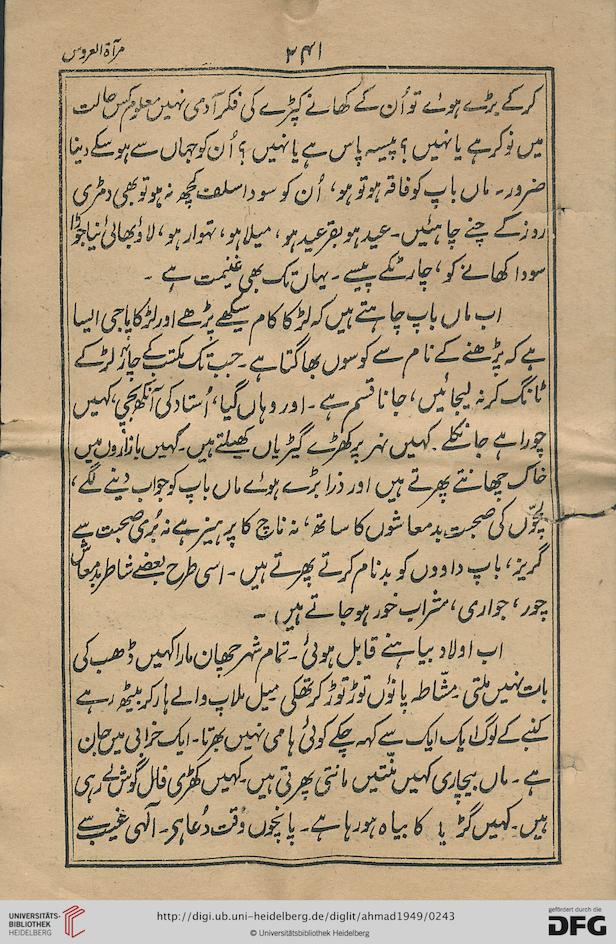 مرآة العروس
۲۴۱
کرکے بڑے ہوئے تو اُن کے کھانے کپڑے کی فکر آدمی نہیں معلوم کس حالت
میں نوکر ہے یا نہیں ؟ پیسہ پاس ہے یا نہیں ؟ اُن کو جہاں سے ہوسکے دینا
ضرور۔ ماں باپ کو فاقہ ہو تو ہو، اُن کو سودا سلف کچھ نہ ہو تو بھی دمڑی
روز کے چنے چاہئیں۔ عید ہو بقر عید ہو، میلا ہو، تہوار ہو، لاؤ بھائی نیا جوڑا
سودا کھانے کو، چار ٹکے پیسے۔ یہاں تک بھی غنیمت ہے ۔
اب ماں باپ چاہتے ہیں کہ لڑکا کام سیکھے پڑھے اور لڑکا پاجی ایسا
ہے کہ پڑھنے کے نام سے کوسوں بھاگتا ہے۔ جب تک مکتب کے چار لڑکے
ٹانگ کر نہ لیجائیں، جانا قسم ہے۔ اور وہاں گیا، اُستاد کی آنکھ بچی، کہیں
چوراہے جا نکلے۔ کہیں نہر پر کھڑے گیڑیاں کھیلتے ہیں۔ کہیں بازاروں میں
خاک چھانتے پھرتے ہیں اور ذرا بڑے ہوئے ماں باپ کو جواب دینے لگے،
لچّوں کی صحبت بدمعاشوں کا ساتھ، نہ ناچ کا پرہیز ہے نہ بُری صحبت سے
گریز، باپ دادوں کو بدنام کرتے پھرتے ہیں۔ اسی طرح بعضے شاطر بدمعاش
چور، جواری، شراب خور ہوجاتے ہیں) ۔
اب اولاد بیاہنے قابل ہوئی۔ تمام شہر چھان مارا کہیں ڈھب کی
بات نہیں ملتی۔ مشّاطہ پاؤں توڑ توڑ کر تھکی میل ملاپ والے ہار کر بیٹھ رہے
کنبے کے لوگ ایک ایک سے کہہ چکے کوئی ہامی نہیں بھرتا۔ ایک خرابی میں جان
ہے۔ ماں بیچاری کہیں منّتیں مانتی پھرتی ہیں۔ کہیں کھڑی فال گوش لے رہی
ہیں۔ کہیں گڑیا کا بیاہ ہو رہا ہے۔ پانچوں وقت دُعا ہے۔ الٰہی غیب سے
UNIVERSITÄTS-
BIBLIOTHEK
HEIDELBERG
http://digi.ub.uni-heidelberg.de/diglit/ahmad1949/0243
© Universitätsbibliothek Heidelberg
gefördert durch die
DFG